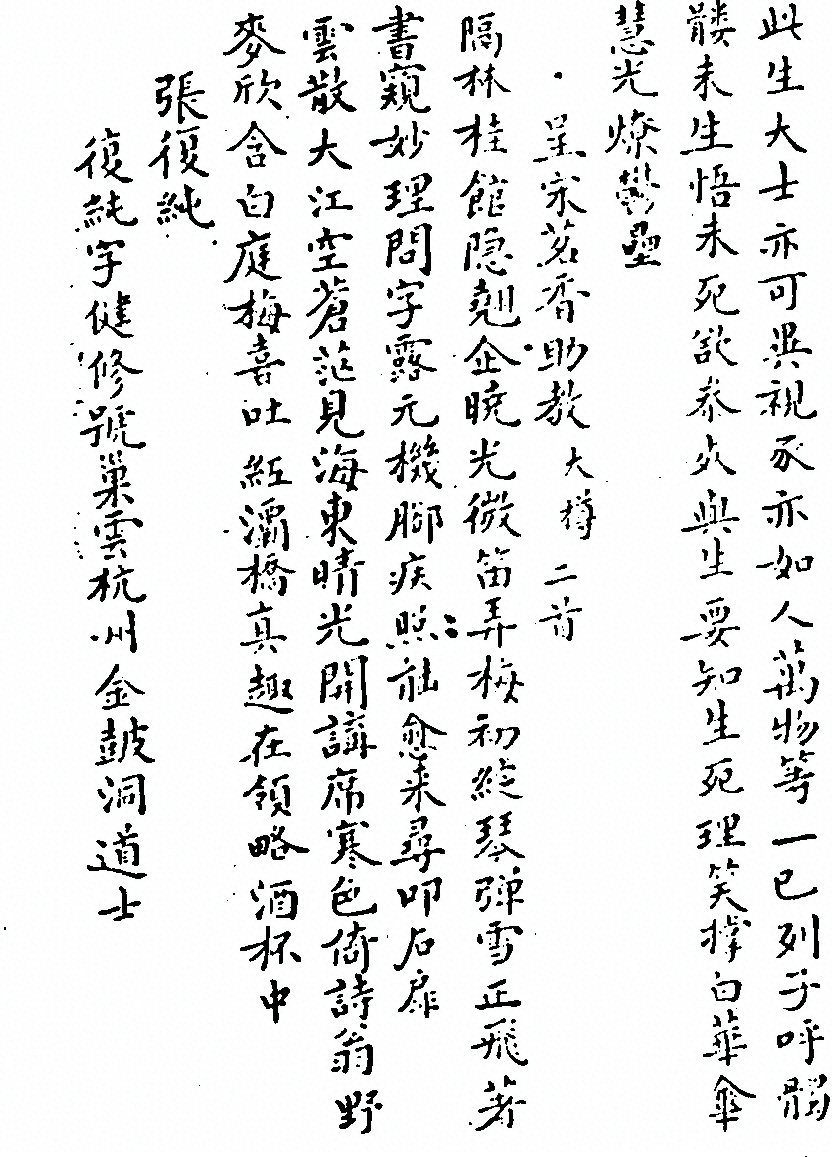 此生大士亦可異視豕亦如人萬物等一已列子呼髑
髏未生悟未死欲泰與生要知生死理笑撑白華傘
慧光燎鬱壘
呈宋茗香助教大樽二首
隔林桂館隐翹企曉光微笛弄梅初綻琴彈雪正飛著
書窺妙理問字露元機腳疾照能愈来尋叩石扉
雲散大江空蒼茫見海東晴光開講席寒色倚詩翁野
麥欣含白庭梅喜吐紅灞橋真趣在領略酒杯中
張復純
復純字健修號巢雲杭州金鼓洞道士